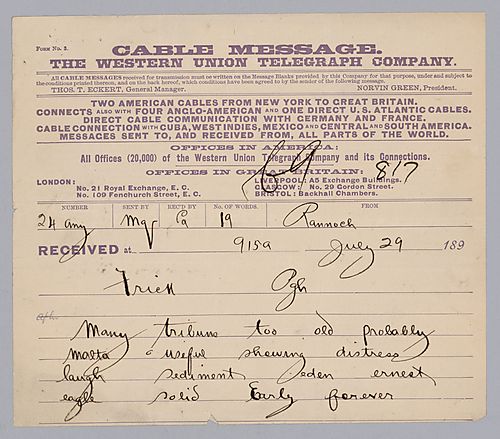 FORM No. 2.
CABLE MESSAGE.
THE WESTERN UNION TELEGRAPH COMPANY.
All CABLE MESSAGES received for transmission must be written on the Message Blanks provided by this Company for that purpose, under and subject to
the conditions printed thereon, and on the back hereof, which conditions have been agreed to by the sender of the following message.
THOS. T. ECKERT, General Manager. NORVIN GREEN, President.
TWO AMERICAN CABLES FROM NEW YORK TO GREAT BRITAIN.
CONNECTS ALSO WITH FOUR ANGLO-AMERICAN AND ONE DIRECT U.S. ATLANTIC CABLES.
DIRECT CABLE COMMUNICATION WITH GERMANY AND FRANCE.
CABLE CONNECTION WITH CUBA, WEST INDIES, MEXICO AND CENTRAL AND SOUTH AMERICA.
MESSAGES SENT TO, AND RECEIVED FROM, ALL PARTS OF THE WORLD.
OFFICES IN AMERICA:
All Offices (20,000) of the Western Union Telegraph Company and its Connections.
OFFICES IN GREAT BRITAIN:
LONDON: LIVERPOOL: A5 Exchange Buildings. 817
No. 21 Royal Exchange, E. C. GLASGOW: No. 29 Gordon Street.
No. 109 Fenchurch Street, E. C. BRISTOL: Backhall Chambers.
NUMBER SENT BY REC'D BY No. OF WORDS. FROM
24 any Mq Ca 19 Rannoch
RECEIVED at 915a July 29 189
Frick Pgh
Many tribune too old probably
malta useful shewing distress
laugh sediment eden ernest
eagle solid Early forever